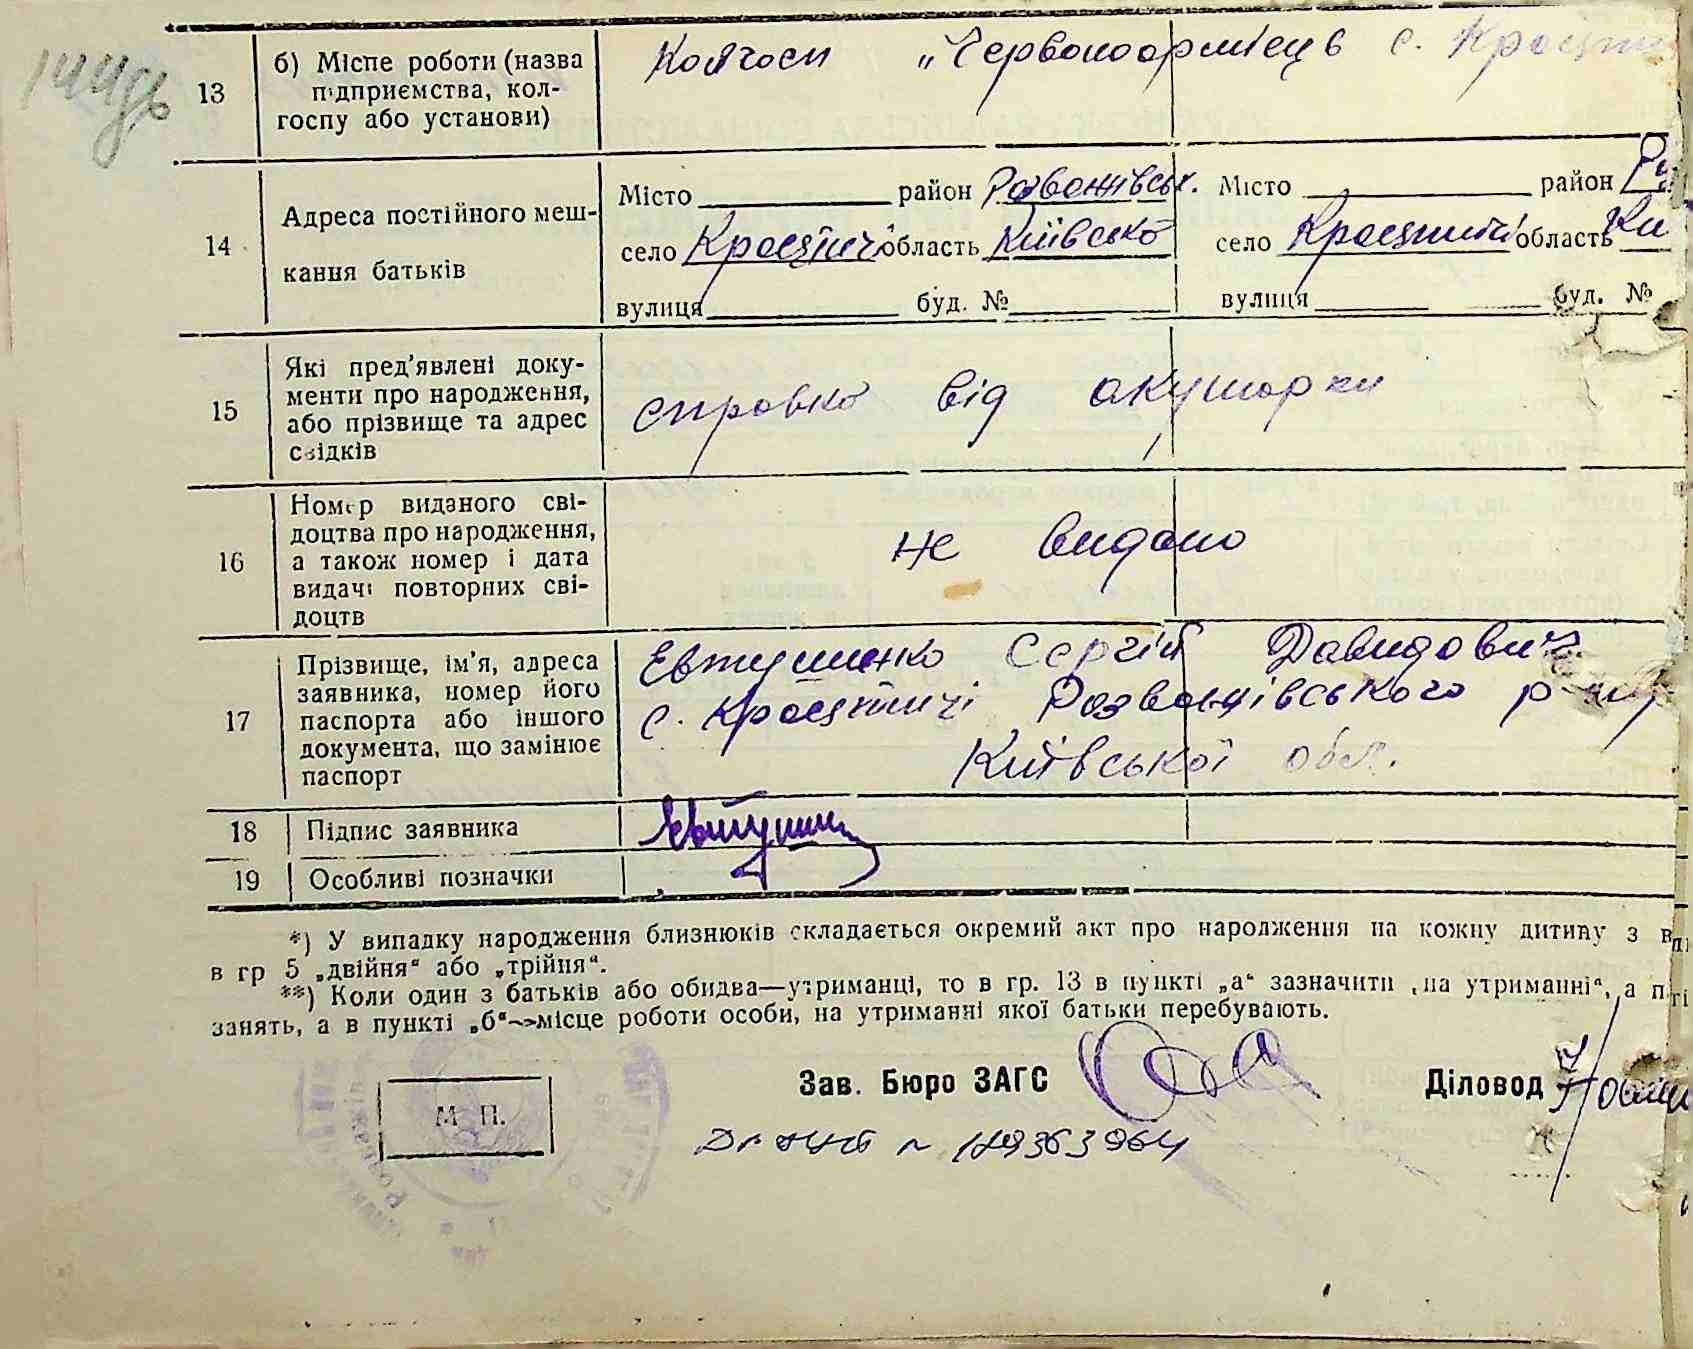 13 б) Місце роботи (назва підприємства, колгоспу або установи) Колгосп „Червоноармієць с.
14 Адреса постійного мешкання батьків
Місто район Розважівськ. Місто район
село область Київсько село область
вулиця буд. № вулиця буд. №
15 Які пред'явлені документи про народження, або прізвище та адрес свідків
справка від акушорки
16 Номер виданого свідоцтва про народження, а також номер і дата видачі повторних свідоцтв
не видано
17 Прізвище, ім'я, адреса заявника, номер його паспорта або іншого документа, що замінює паспорт
Євтушенко Сергій Давидович
с. Розважівського р-ну
Київської обл.
18 Підпис заявника
19 Особливі позначки
*) У випадку народження близнюків складається окремий акт про народження на кожну дитину з
в гр 5 „двійня“ або „трійня“.
**) Коли один з батьків або обидва—утриманці, то в гр. 13 в пункті „а“ зазначити „на утриманні“, а
занять, а в пункті „б“—місце роботи особи, на утриманні якої батьки перебувають.
Зав. Бюро ЗАГС Діловод
М. П.